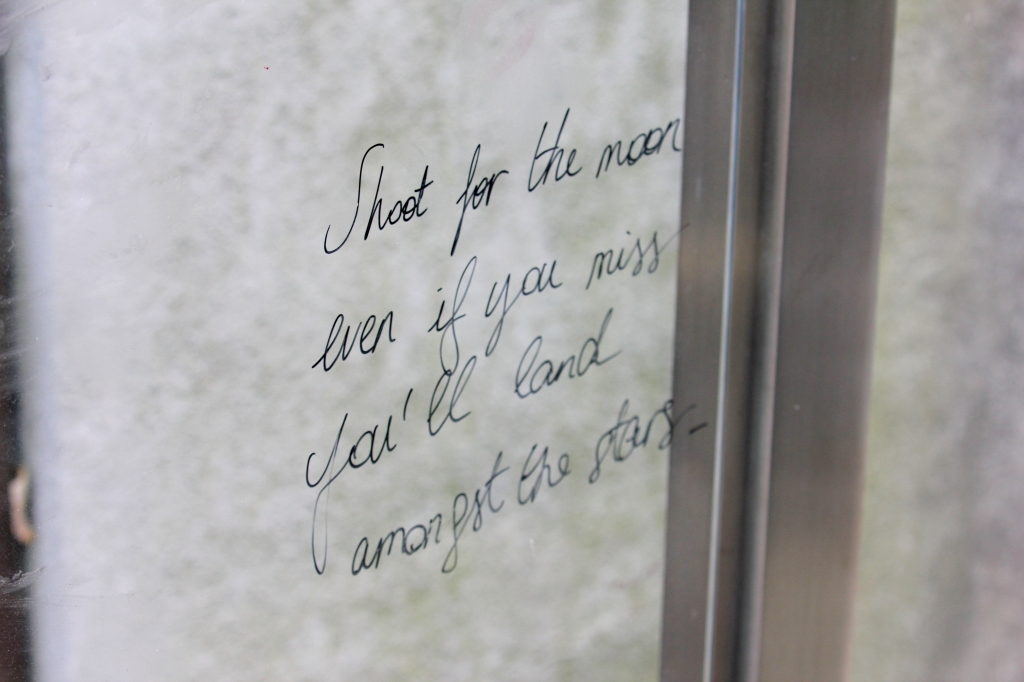 Shoot for the moon
even if you miss
you'll land
amongst the stars-